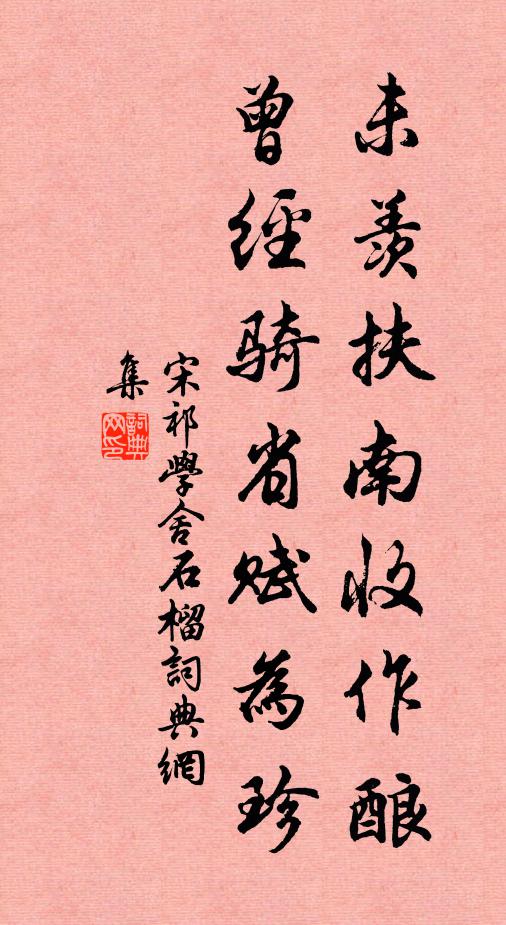 未羡扶南收作酿
曾經騎省賦為珍
宋祁學舍石榴詞典網
集
詞典网印